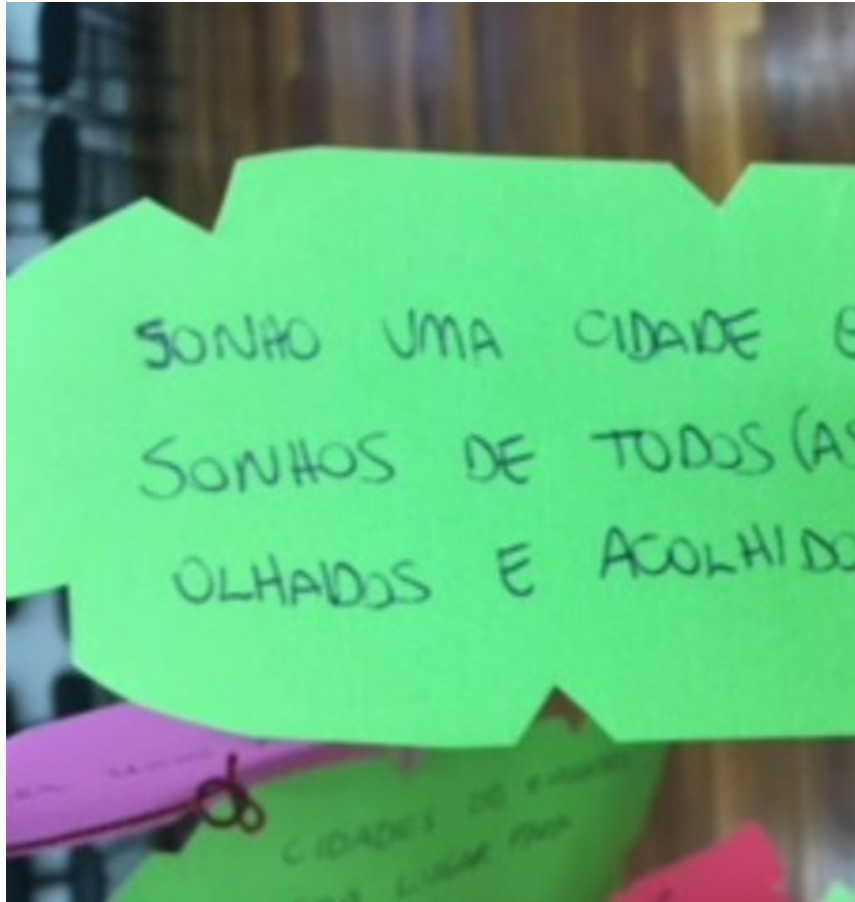 SONHO UMA CIDADE
SONHOS DE TODOS (AS
OLHADOS E ACOLHIDO
CIDADES DE
LUGAR PARA